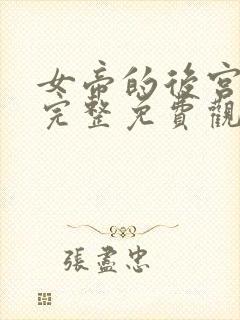 女帝的後宮
完整免費觀
張盡忠